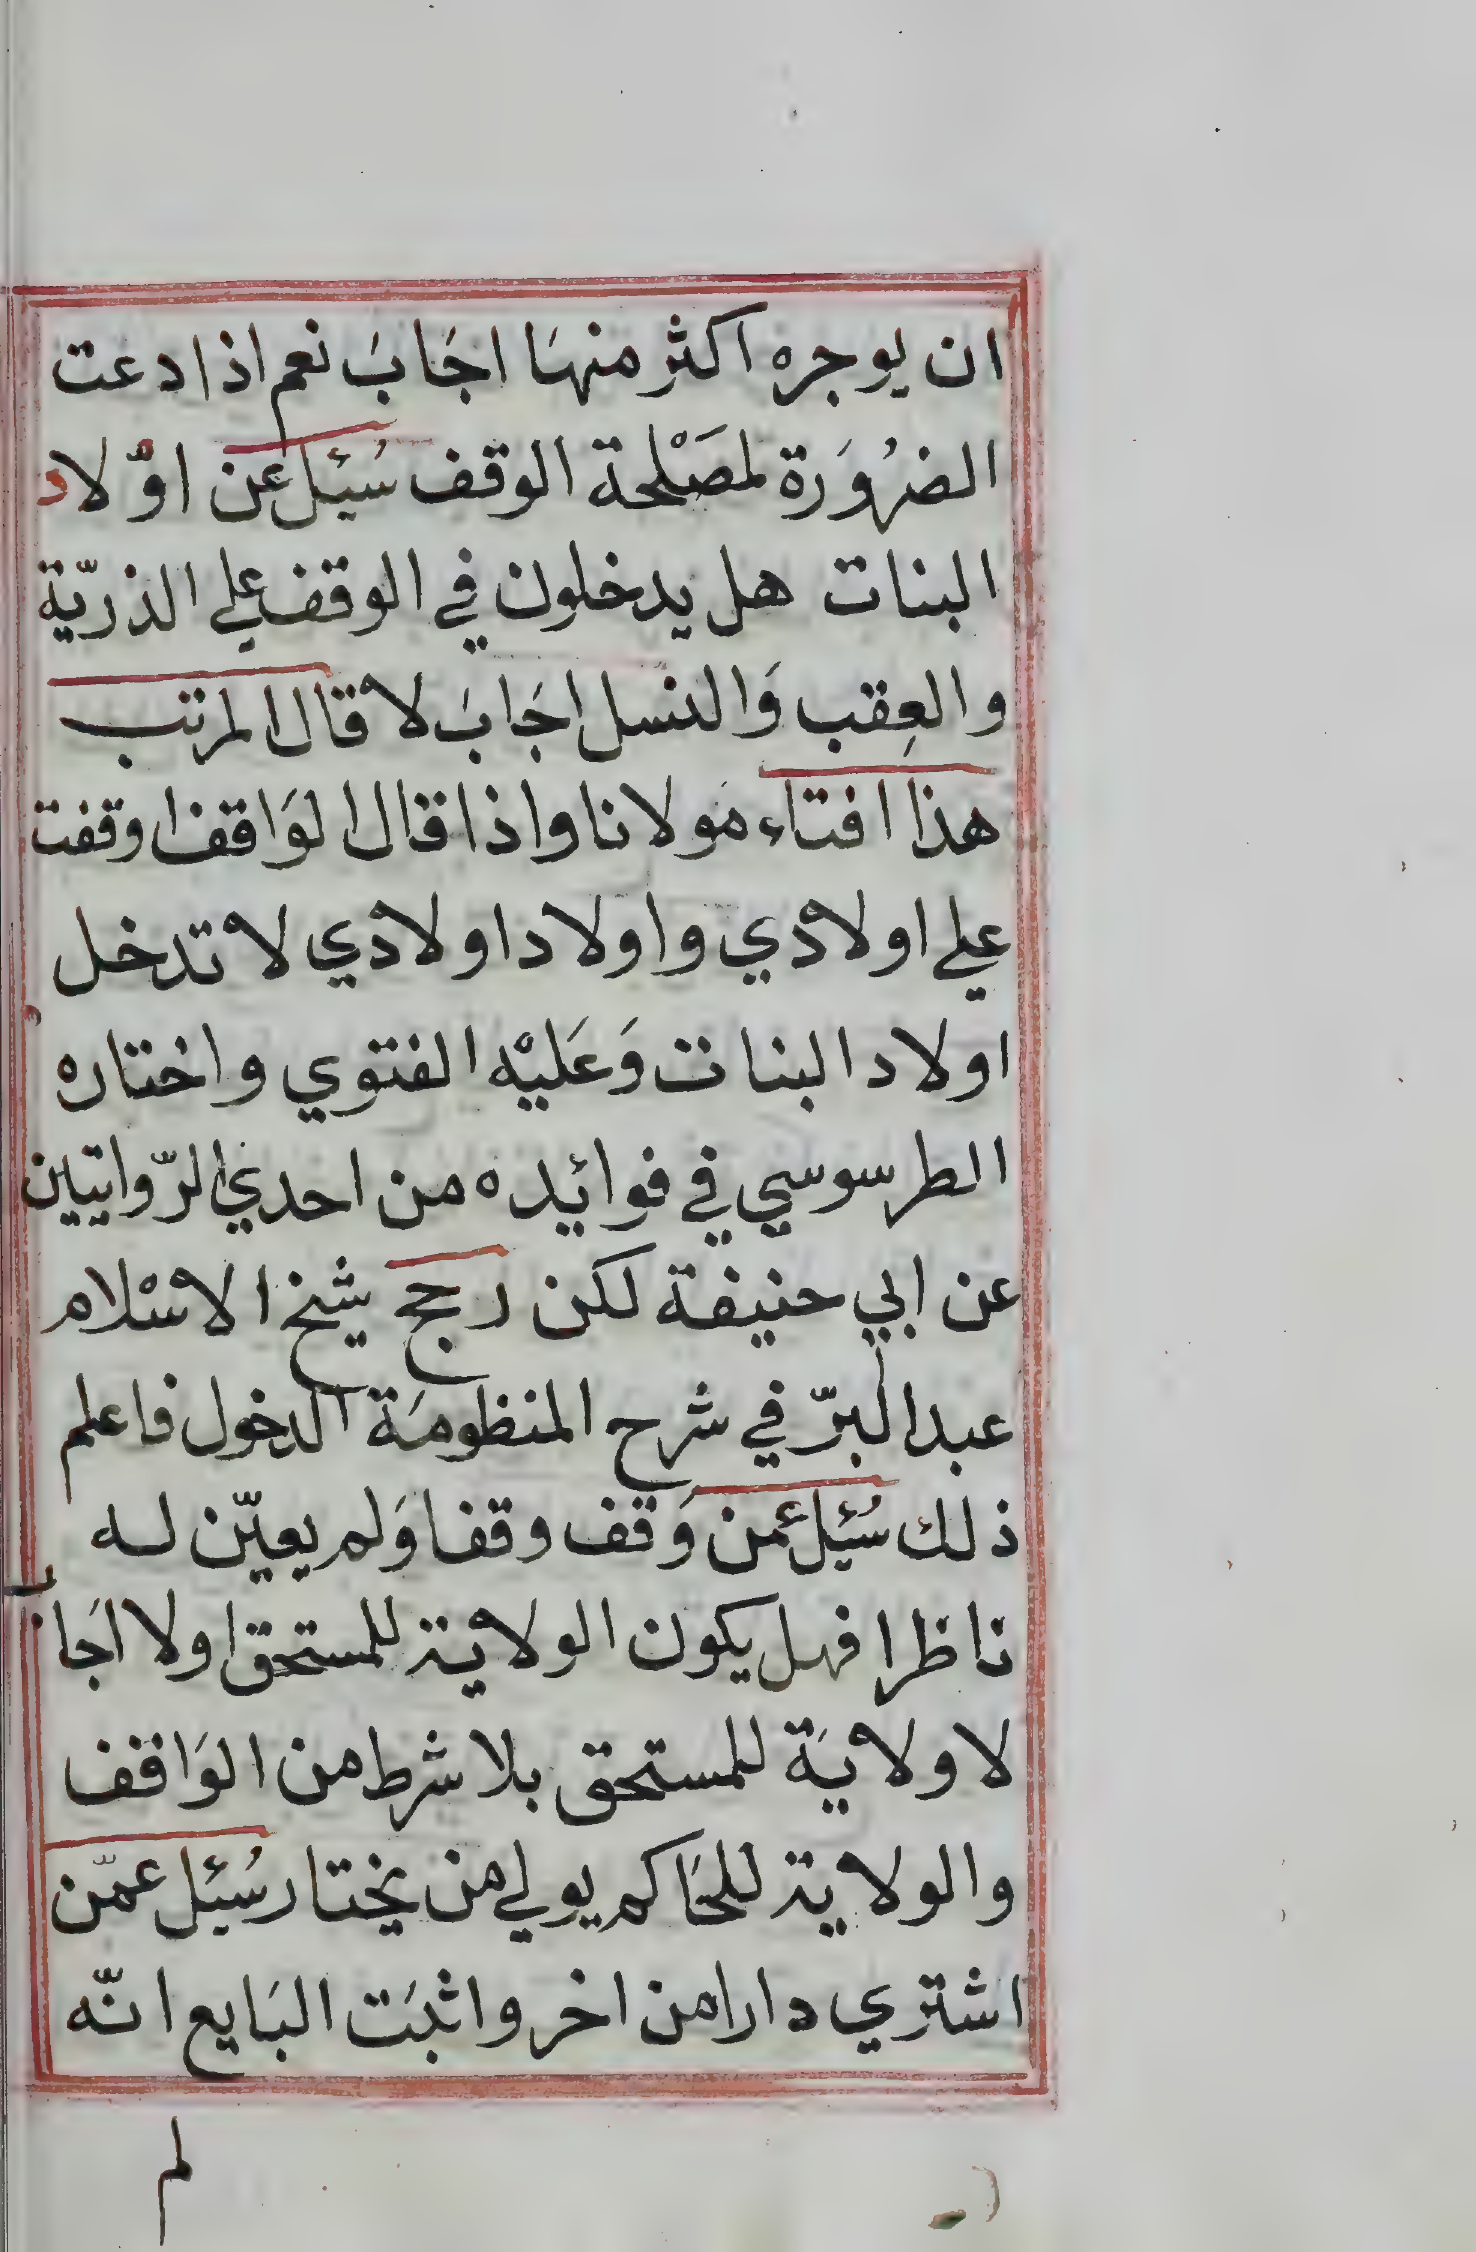 ان يوجره اكثر منهَا اجَابَ نعم اذا دعت
الضرُورَة لمصَلْحة الوقف سُئِل عن اوْلاد
البنات هل يدخلون في الوقف علي الذريّة
والعِقب وَالنسل اجَابَ لا قال المرتب
هذا افتاء مَولانا واذا قال الوَاقف اوقفت
علي اولادي واولاد اولادي لا تدخل
اولاد البنات وَعَليْه الفتوي واختاره
الطرسوسي في فوائده من احدي الرّوايتين
عن ابي حنيفة لكن رجح شيخ الاسْلام
عبد البرّ في شرح المنظومَة الدخول فاعلم
ذلك سُئِل عمن وَقف وقفا وَلم يعيّن له
ناظرا فهل يكون الولاية للمستحق اولا اجَاب
لا ولايَة للمستحق بلا شرط من الوَاقف
والولاية للحَاكم يولي من يختار سُئِل عمّن
اشتري دارا من اخر واثبَت البَايع انّه
لم